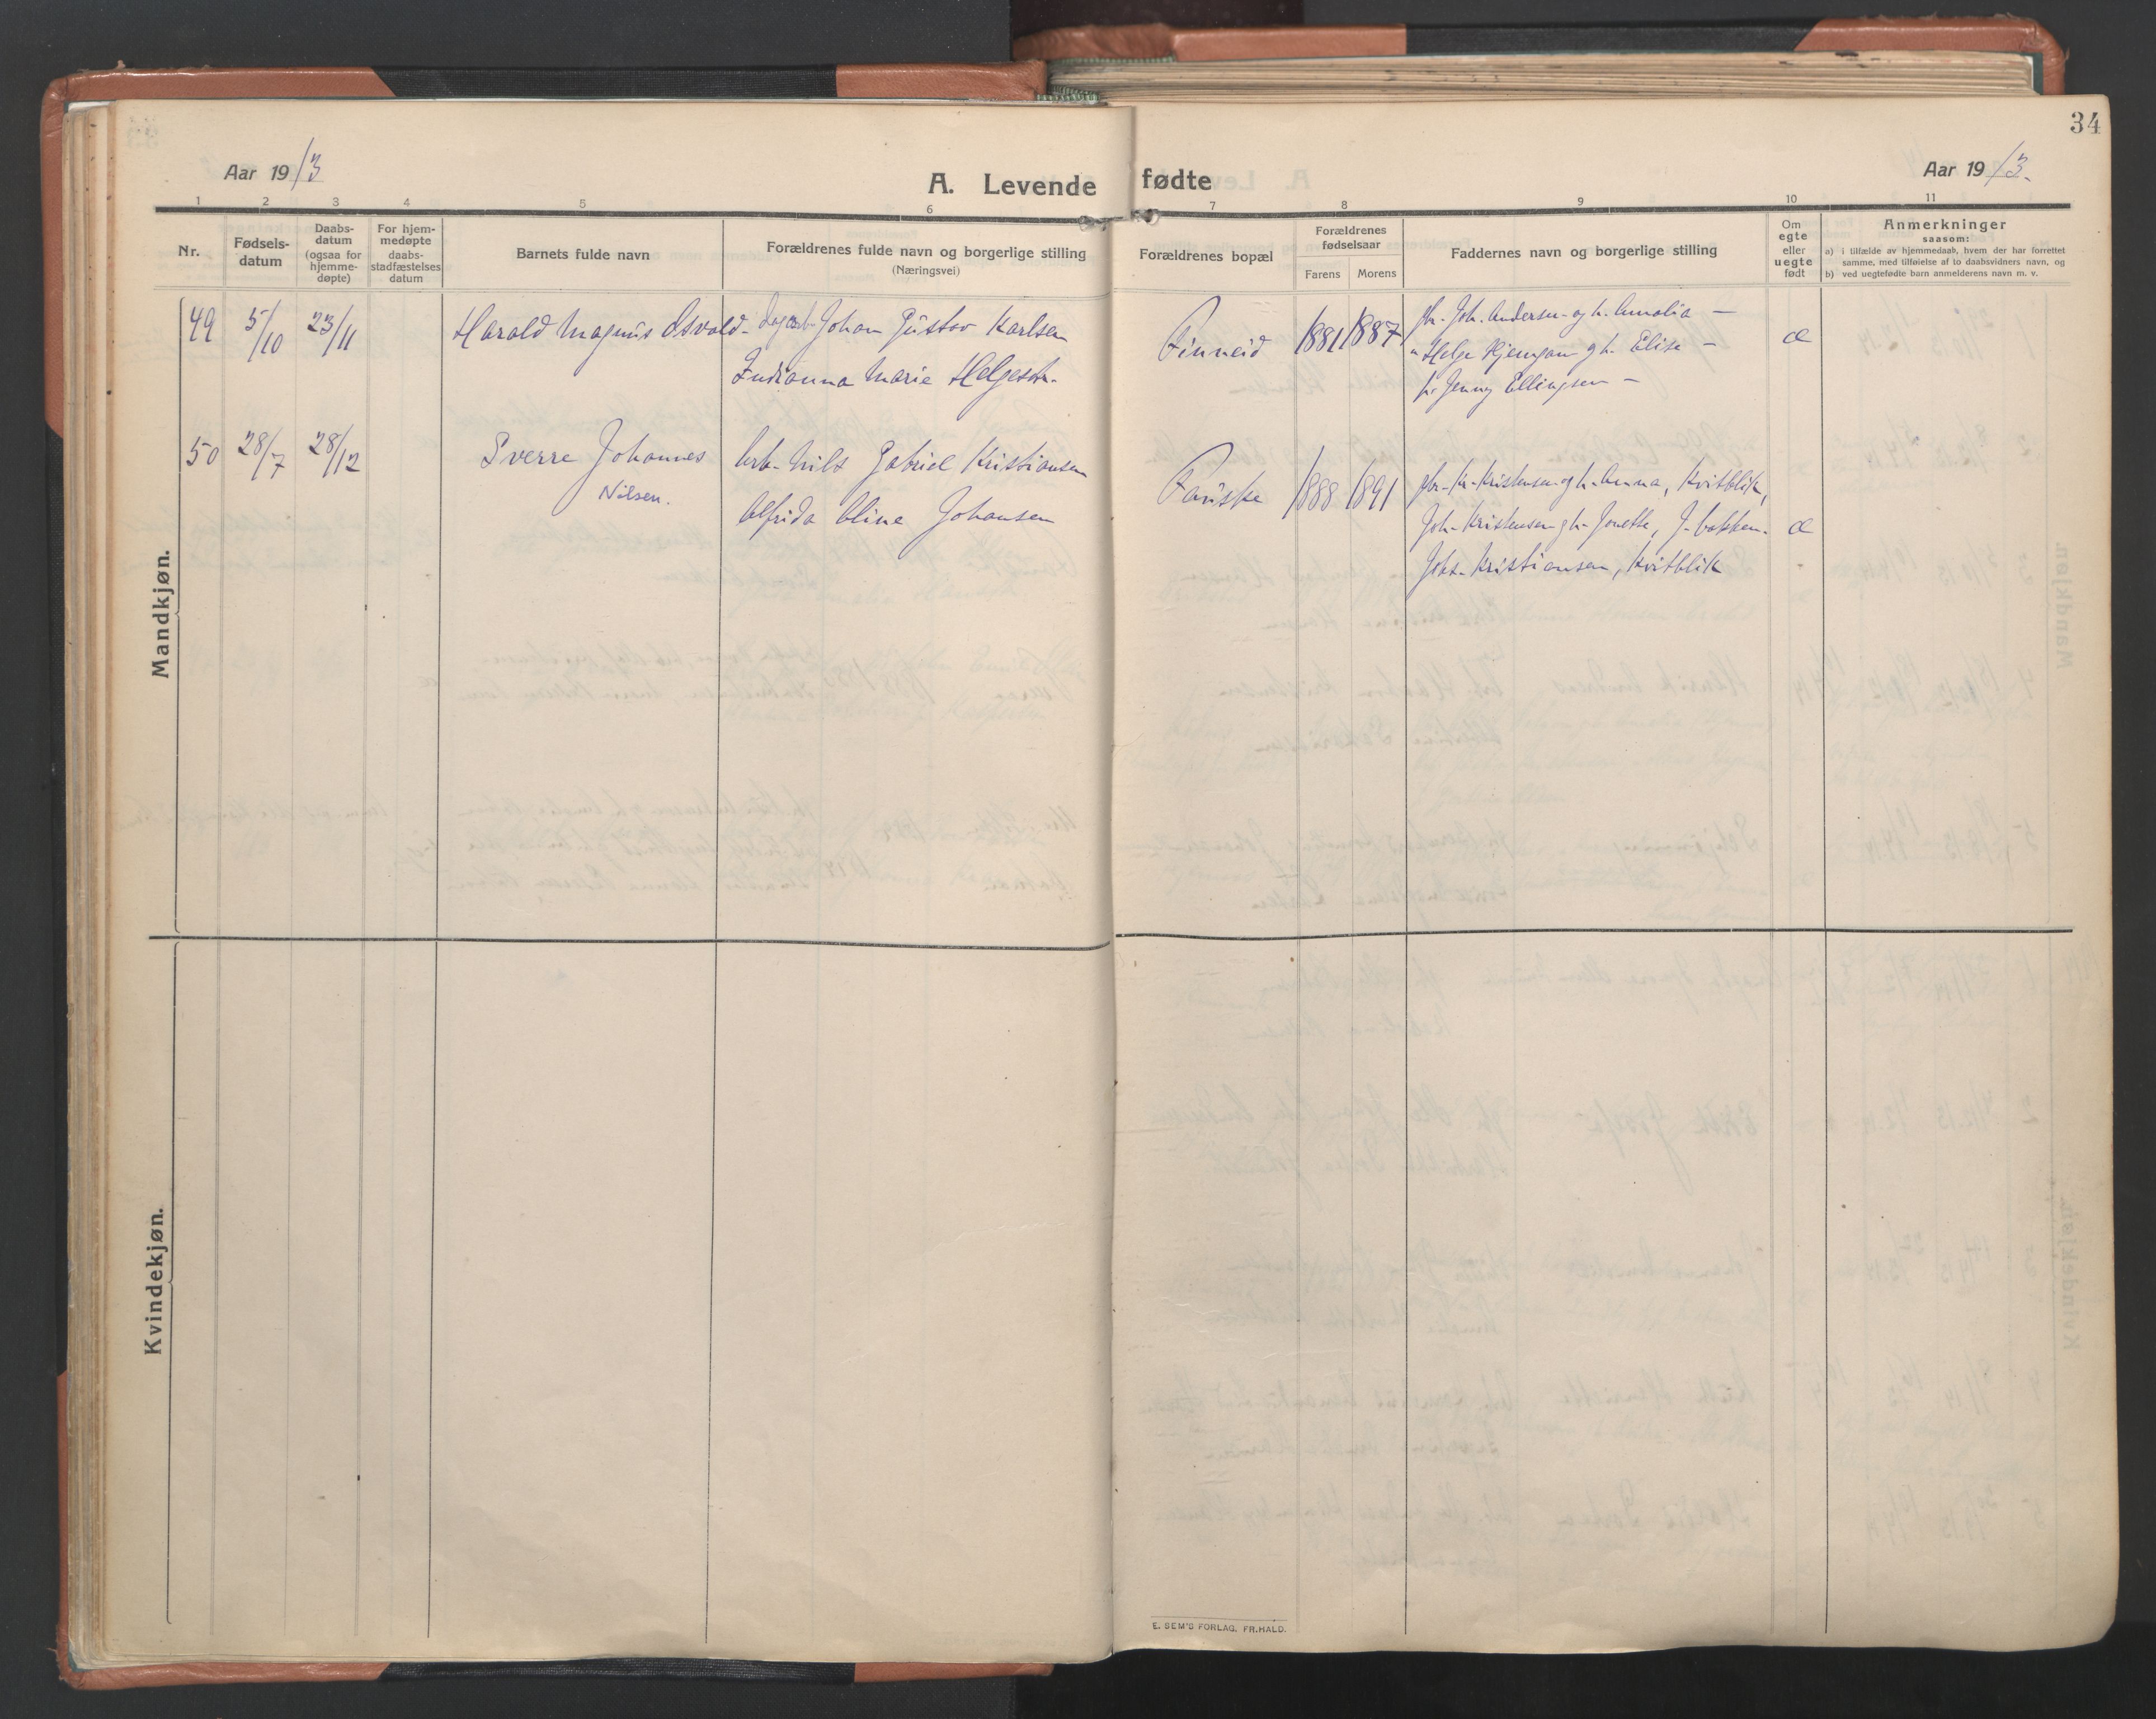 34
Aar 1913
A. Levende fødte
Aar 1913.
1 2 3 4 5 6 7 8 9 10 11
Nr.
Fødsels-
datum
Daabs-
datum
(ogsaa for
hjemme-
døpte)
For hjem-
medøpte
daabs-
stadfæstelses
datum
Barnets fulde navn
Forældrenes fulde navn og borgerlige stilling
(Næringsvei)
Forældrenes bopæl
Forældrenes
fødselsaar
Farens Morens
Faddernes navn og borgerlige stilling
Om
egte
eller
uegte
født
Anmerkninger
saasom:
a) i tilfælde av hjemmedaab, hvem der har forrettet
samme, med tilføielse af to daabsvidners navn, og
b) ved uegtefødte barn anmelderens navn m. v.
Mandkjøn.
49 5/10 23/11 Harald Magnus Osvald- Johan Gustav Karlsen
Indianna Marie Helgesdtr.
Finneid 1881 1887
gbr. Joh. Andersen og h. Amalia —
" Helge Hjemgam og h. Elise —
Jenny Ellingsen —
æ
50 28/7 28/12 Sverre Johannes
Nilsen.
Arb. Nils Gabriel Kristiansen
Alfrida Oline Johansen
Fauske 1888 1891
gbr. Kr. Kristensen og h. Anna, Kvitblik,
Joh. Kristensen og h. Jonette, J-bakken.
Johs. Kristiansen, Kvitblik
æ
Kvindekjøn.
E. SEM'S FORLAG. FR.HALD.